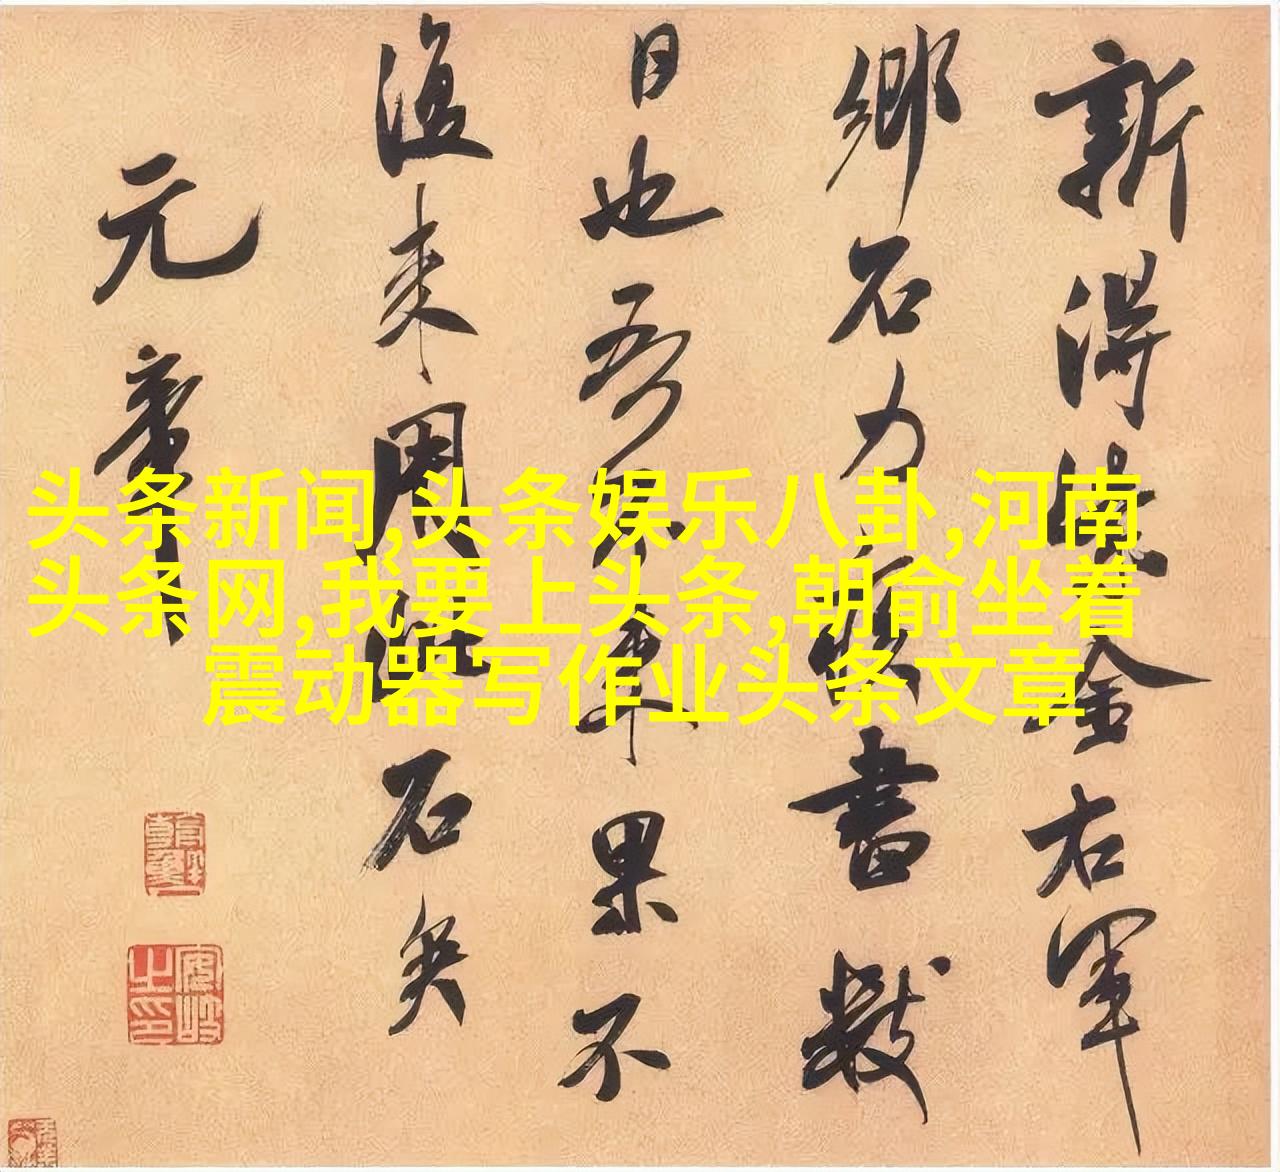 新得紫金右軍
鄉石力疾書數
日也吾不來果不
復來用此石矣
元章
头条新闻,头条娱乐八卦,河南
头条网,我要上头条,朝俞坐着
震动器写作业头条文章